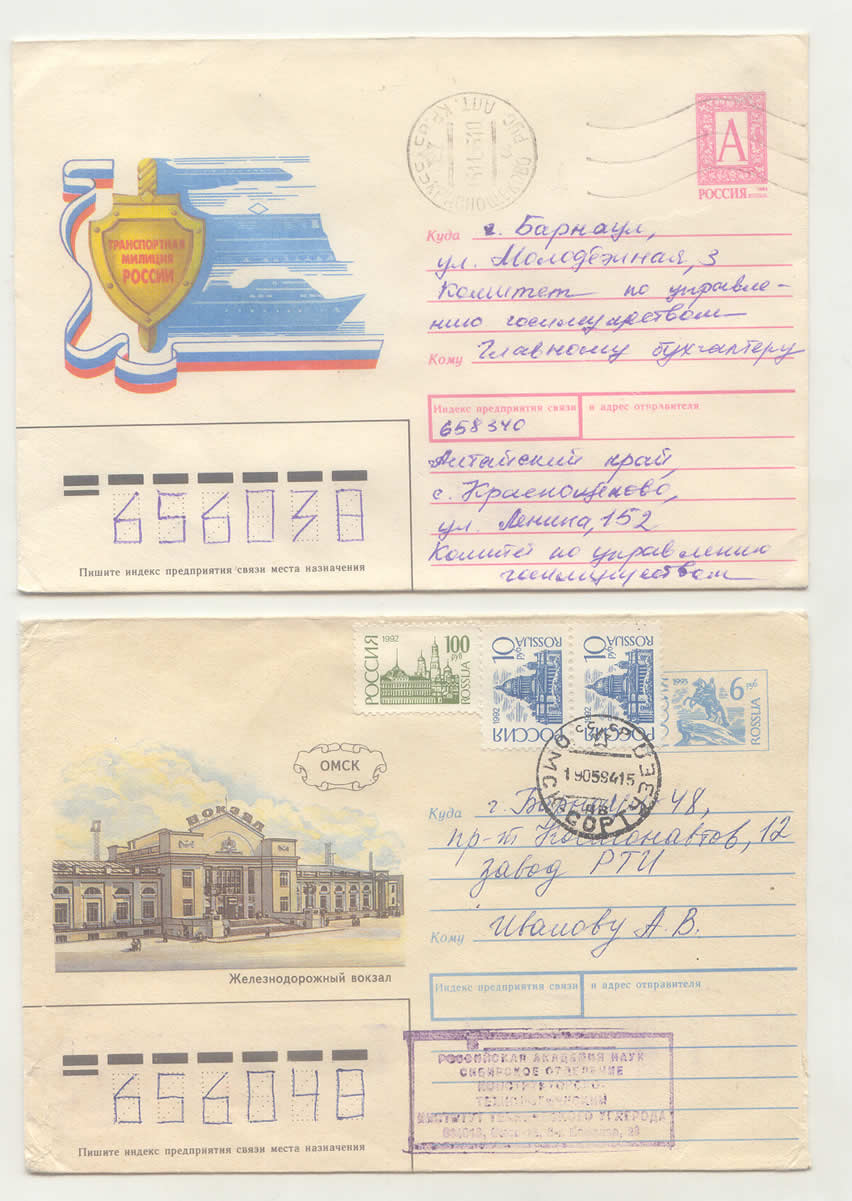 ТРАНСПОРТНАЯ
МИЛИЦИЯ
РОССИИ
А
РОССИЯ
Куда г. Барнаул,
ул. Молодёжная, 3
Комитет по управле-
нию госимуществом
Кому Главному бухгалтеру
Индекс предприятия связи и адрес отправителя
658340
Алтайский край,
с. Краснощёково,
ул. Ленина, 152
Комитет по управлению
госимуществом
656038
Пишите индекс предприятия связи места назначения
РОССИЯ 1992 100 руб ROSSIJA
РОССИЯ 1992 10 руб ROSSIJA
РОССИЯ 1992 10 руб ROSSIJA
1993 6 руб ROSSIJA
СССР
ОМСК
19059415
СОРТ
ОМСК
ВОКЗАЛ
Железнодорожный вокзал
Куда г. 48,
пр-т Космонавтов, 12
завод РТИ
Кому Иванову А. В.
Индекс предприятия связи и адрес отправителя
РОССИЙСКАЯ АКАДЕМИЯ НАУК
СИБИРСКОЕ ОТДЕЛЕНИЕ
КОНСТРУКТОРСКО-
ТЕХНОЛОГИЧЕСКИЙ
ИНСТИТУТ ТЕХНИЧЕСКОГО УГЛЕРОДА
656048
Пишите индекс предприятия связи места назначения